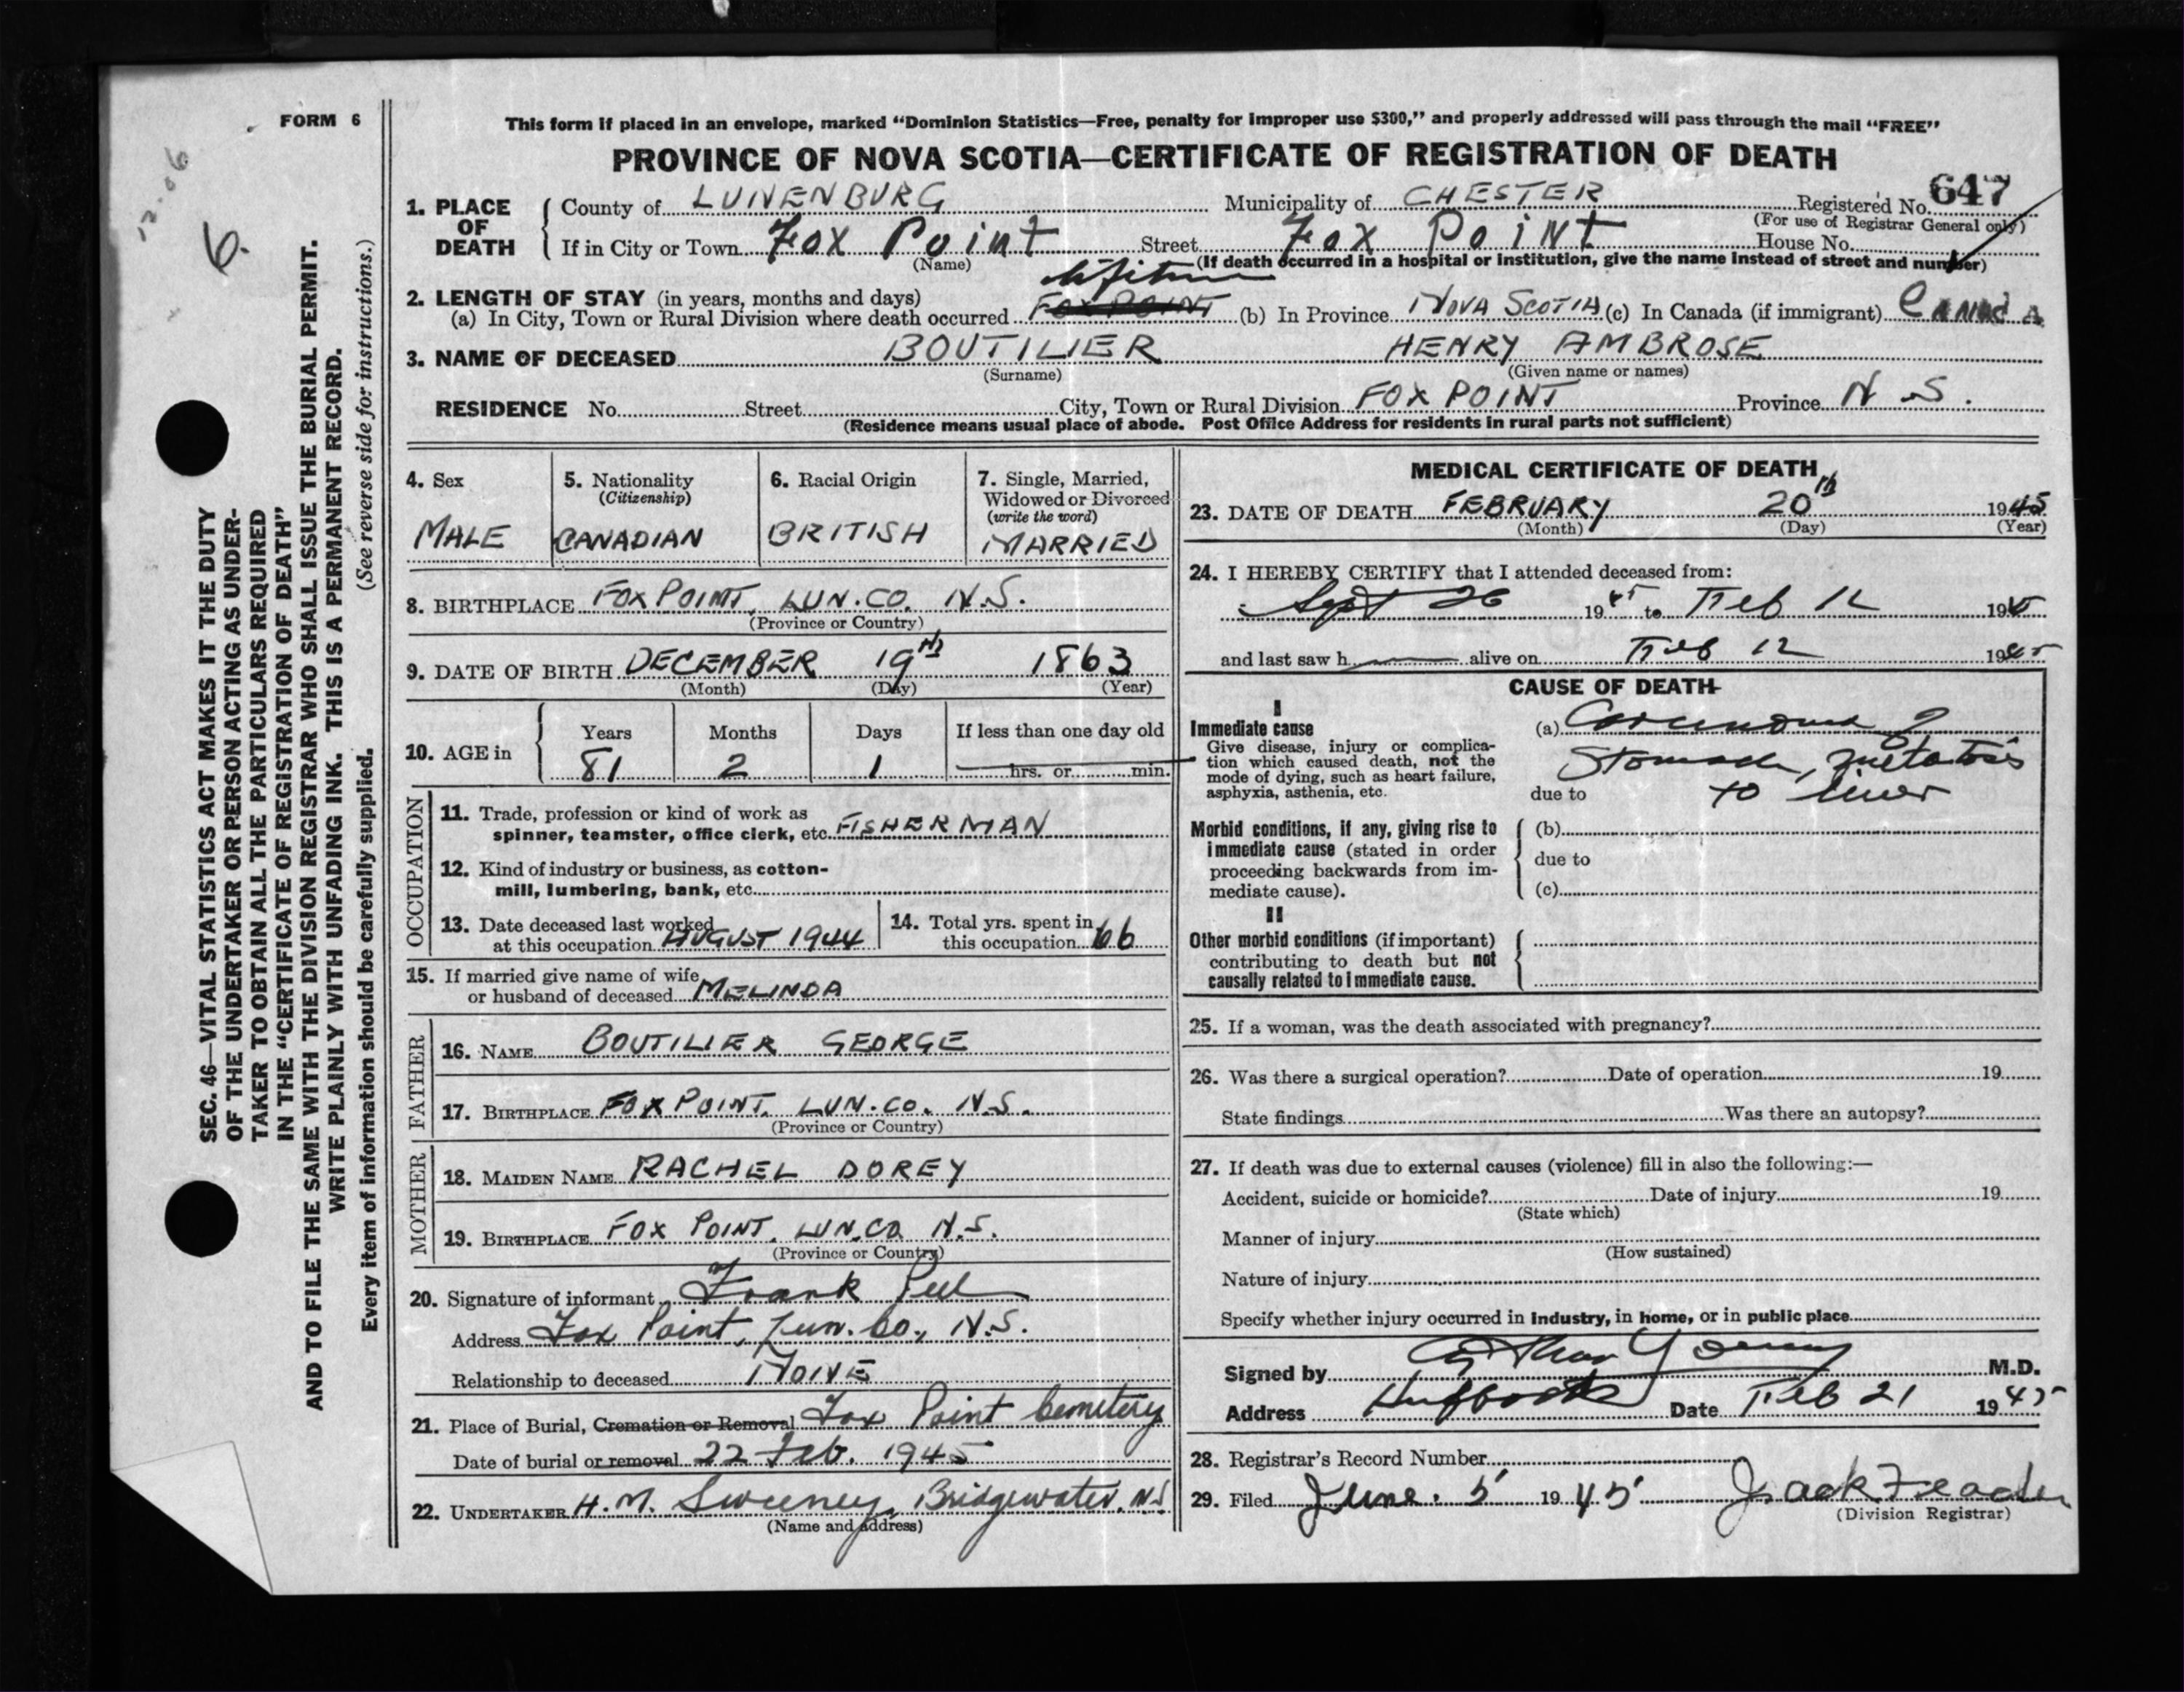 FORM 6
12-06
6.
SEC. 46—VITAL STATISTICS ACT MAKES IT THE DUTY
OF THE UNDERTAKER OR PERSON ACTING AS UNDER-
TAKER TO OBTAIN ALL THE PARTICULARS REQUIRED
IN THE "CERTIFICATE OF REGISTRATION OF DEATH"
AND TO FILE THE SAME WITH THE DIVISION REGISTRAR WHO SHALL ISSUE THE BURIAL PERMIT.
WRITE PLAINLY WITH UNFADING INK. THIS IS A PERMANENT RECORD.
Every item of information should be carefully supplied. (See reverse side for instructions.)
This form if placed in an envelope, marked "Dominion Statistics—Free, penalty for improper use $300," and properly addressed will pass through the mail "FREE"
PROVINCE OF NOVA SCOTIA—CERTIFICATE OF REGISTRATION OF DEATH
1. PLACE OF DEATH County of LUNENBURG Municipality of CHESTER Registered No. 647
(For use of Registrar General only)
If in City or Town Fox Point Street Fox Point House No.
(Name) (If death occurred in a hospital or institution, give the name instead of street and number)
2. LENGTH OF STAY (in years, months and days) lifetime
(a) In City, Town or Rural Division where death occurred FOX POINT (b) In Province NOVA SCOTIA (c) In Canada (if immigrant) Canada
3. NAME OF DECEASED BOUTILIER HENRY AMBROSE
(Surname) (Given name or names)
RESIDENCE No. Street City, Town or Rural Division FOX POINT Province N.S.
(Residence means usual place of abode. Post Office Address for residents in rural parts not sufficient)
4. Sex
MALE
5. Nationality
(Citizenship)
CANADIAN
6. Racial Origin
BRITISH
7. Single, Married,
Widowed or Divorced
(write the word)
MARRIED
8. BIRTHPLACE FOX POINT, LUN. CO. N.S.
(Province or Country)
9. DATE OF BIRTH DECEMBER 19th 1863
(Month) (Day) (Year)
10. AGE in Years Months Days If less than one day old
81 2 1 hrs. or min.
OCCUPATION
11. Trade, profession or kind of work as
spinner, teamster, office clerk, etc. FISHERMAN
12. Kind of industry or business, as cotton-
mill, lumbering, bank, etc.
13. Date deceased last worked
at this occupation AUGUST 1944
14. Total yrs. spent in
this occupation 66
15. If married give name of wife
or husband of deceased MELINDA
FATHER
16. NAME BOUTILIER GEORGE
17. BIRTHPLACE FOX POINT. LUN. CO. N.S.
(Province or Country)
MOTHER
18. MAIDEN NAME RACHEL DOREY
19. BIRTHPLACE FOX POINT. LUN. CO. N.S.
(Province or Country)
20. Signature of informant Frank
Address Fox Point, Lun. Co., N.S.
Relationship to deceased NONE
21. Place of Burial, Cremation or Removal Fox Point Cemetery
Date of burial or removal 22 Feb. 1945
22. UNDERTAKER H. M. Sweeney, Bridgewater, N.S.
(Name and address)
MEDICAL CERTIFICATE OF DEATH
23. DATE OF DEATH FEBRUARY 20th 1945
(Month) (Day) (Year)
24. I HEREBY CERTIFY that I attended deceased from:
Sept 26 19 45 to Feb 12 1945
and last saw h alive on Feb 12 1945
CAUSE OF DEATH
I
Immediate cause
Give disease, injury or complica-
tion which caused death, not the
mode of dying, such as heart failure,
asphyxia, asthenia, etc.
(a) Carcinoma of
Stomach, metatosis
due to to liver
Morbid conditions, if any, giving rise to
immediate cause (stated in order
proceeding backwards from im-
mediate cause).
(b)
due to
(c)
II
Other morbid conditions (if important)
contributing to death but not
causally related to immediate cause.
25. If a woman, was the death associated with pregnancy?
26. Was there a surgical operation? Date of operation 19
State findings Was there an autopsy?
27. If death was due to external causes (violence) fill in also the following:—
Accident, suicide or homicide? Date of injury 19
(State which)
Manner of injury
(How sustained)
Nature of injury
Specify whether injury occurred in industry, in home, or in public place
Signed by Arthur Young M.D.
Address Date Feb 21 1945
28. Registrar's Record Number
29. Filed June 5 1945 Jack
(Division Registrar)